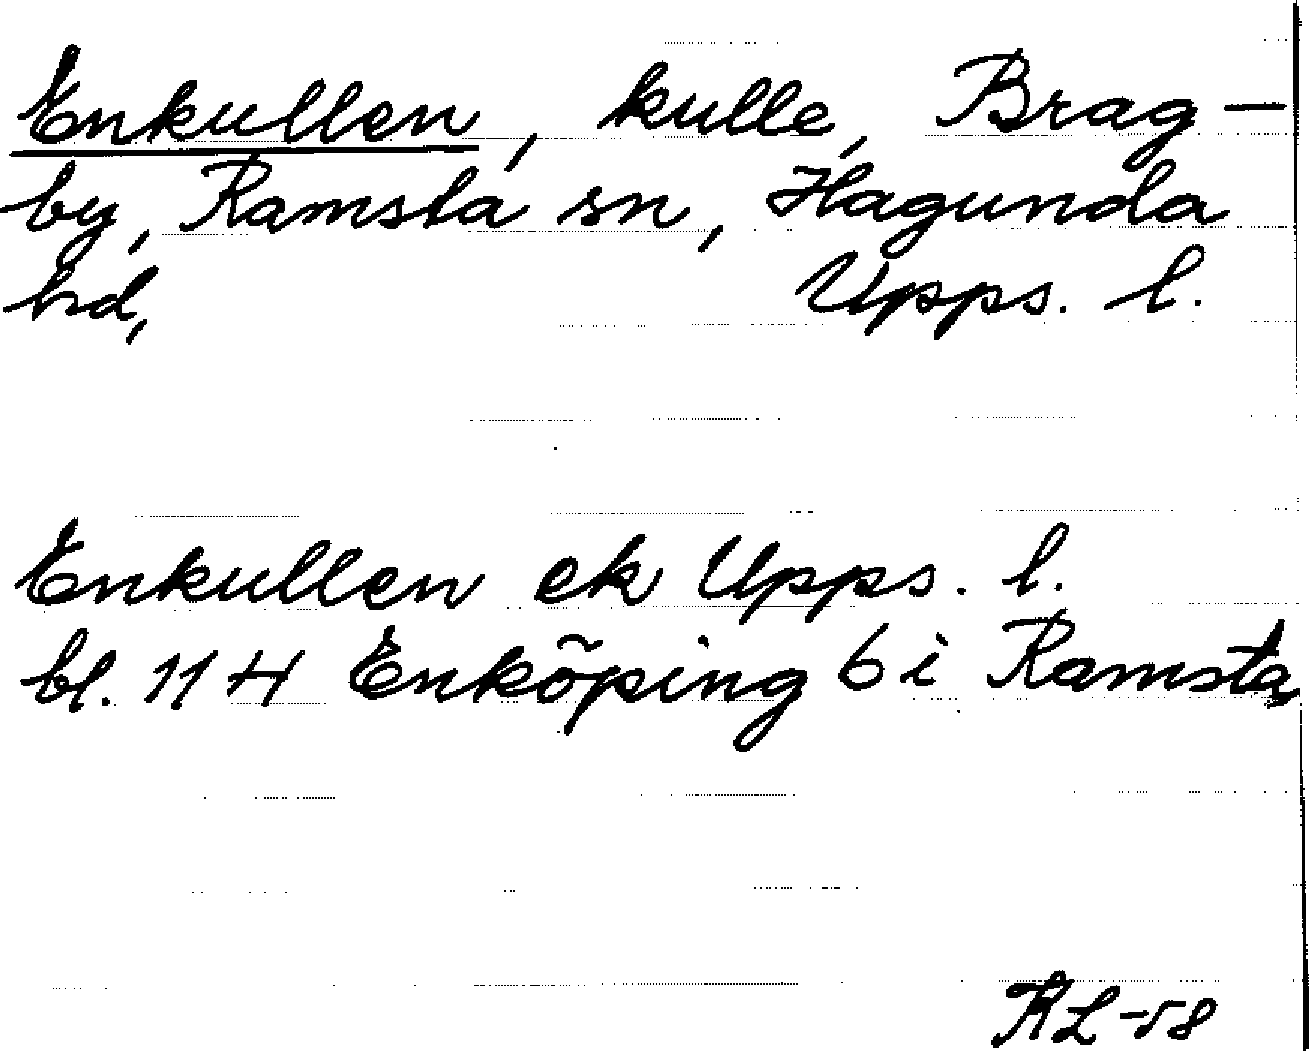 Enkullen, kulle, Brag-
by, Ramsta sn, Hagunda
hd, Upps. l.
Enkullen ek Upps. l.
bl. 114 Enköping 6 i Ramsta
KL-58